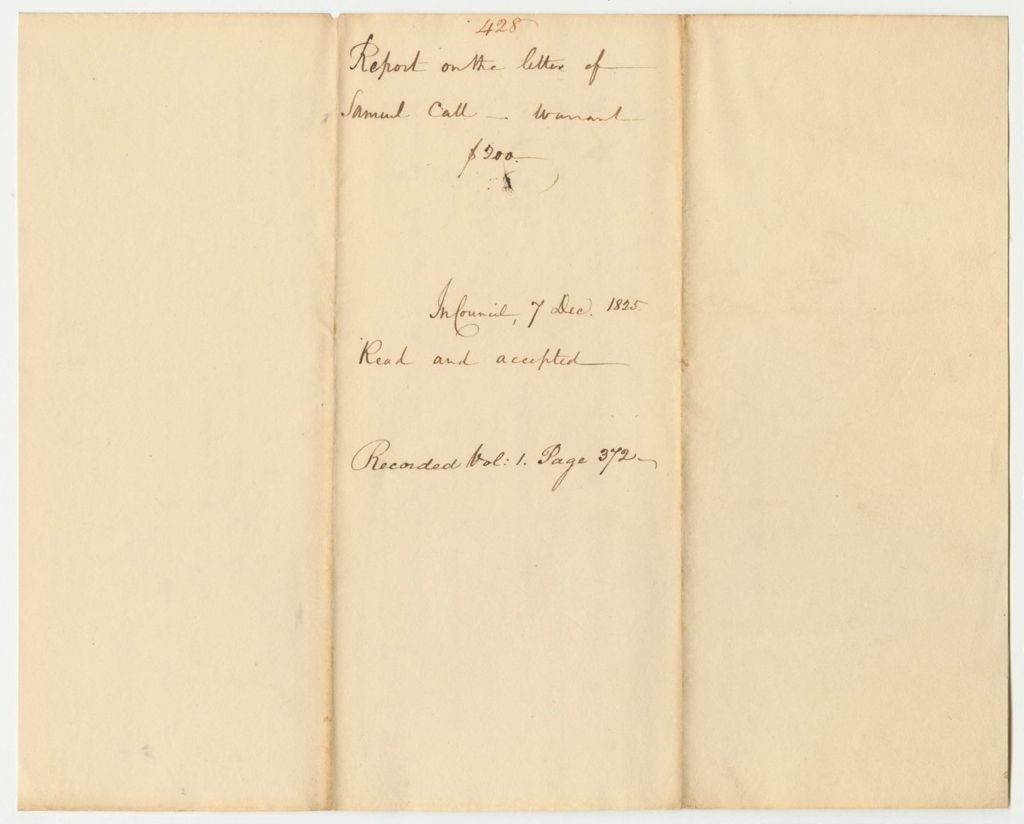 428
Report on the letter of
Samuel Call — Warrant
$200.—
In Council, 7 Dec. 1825
Read and accepted
Recorded Vol: 1. Page 372